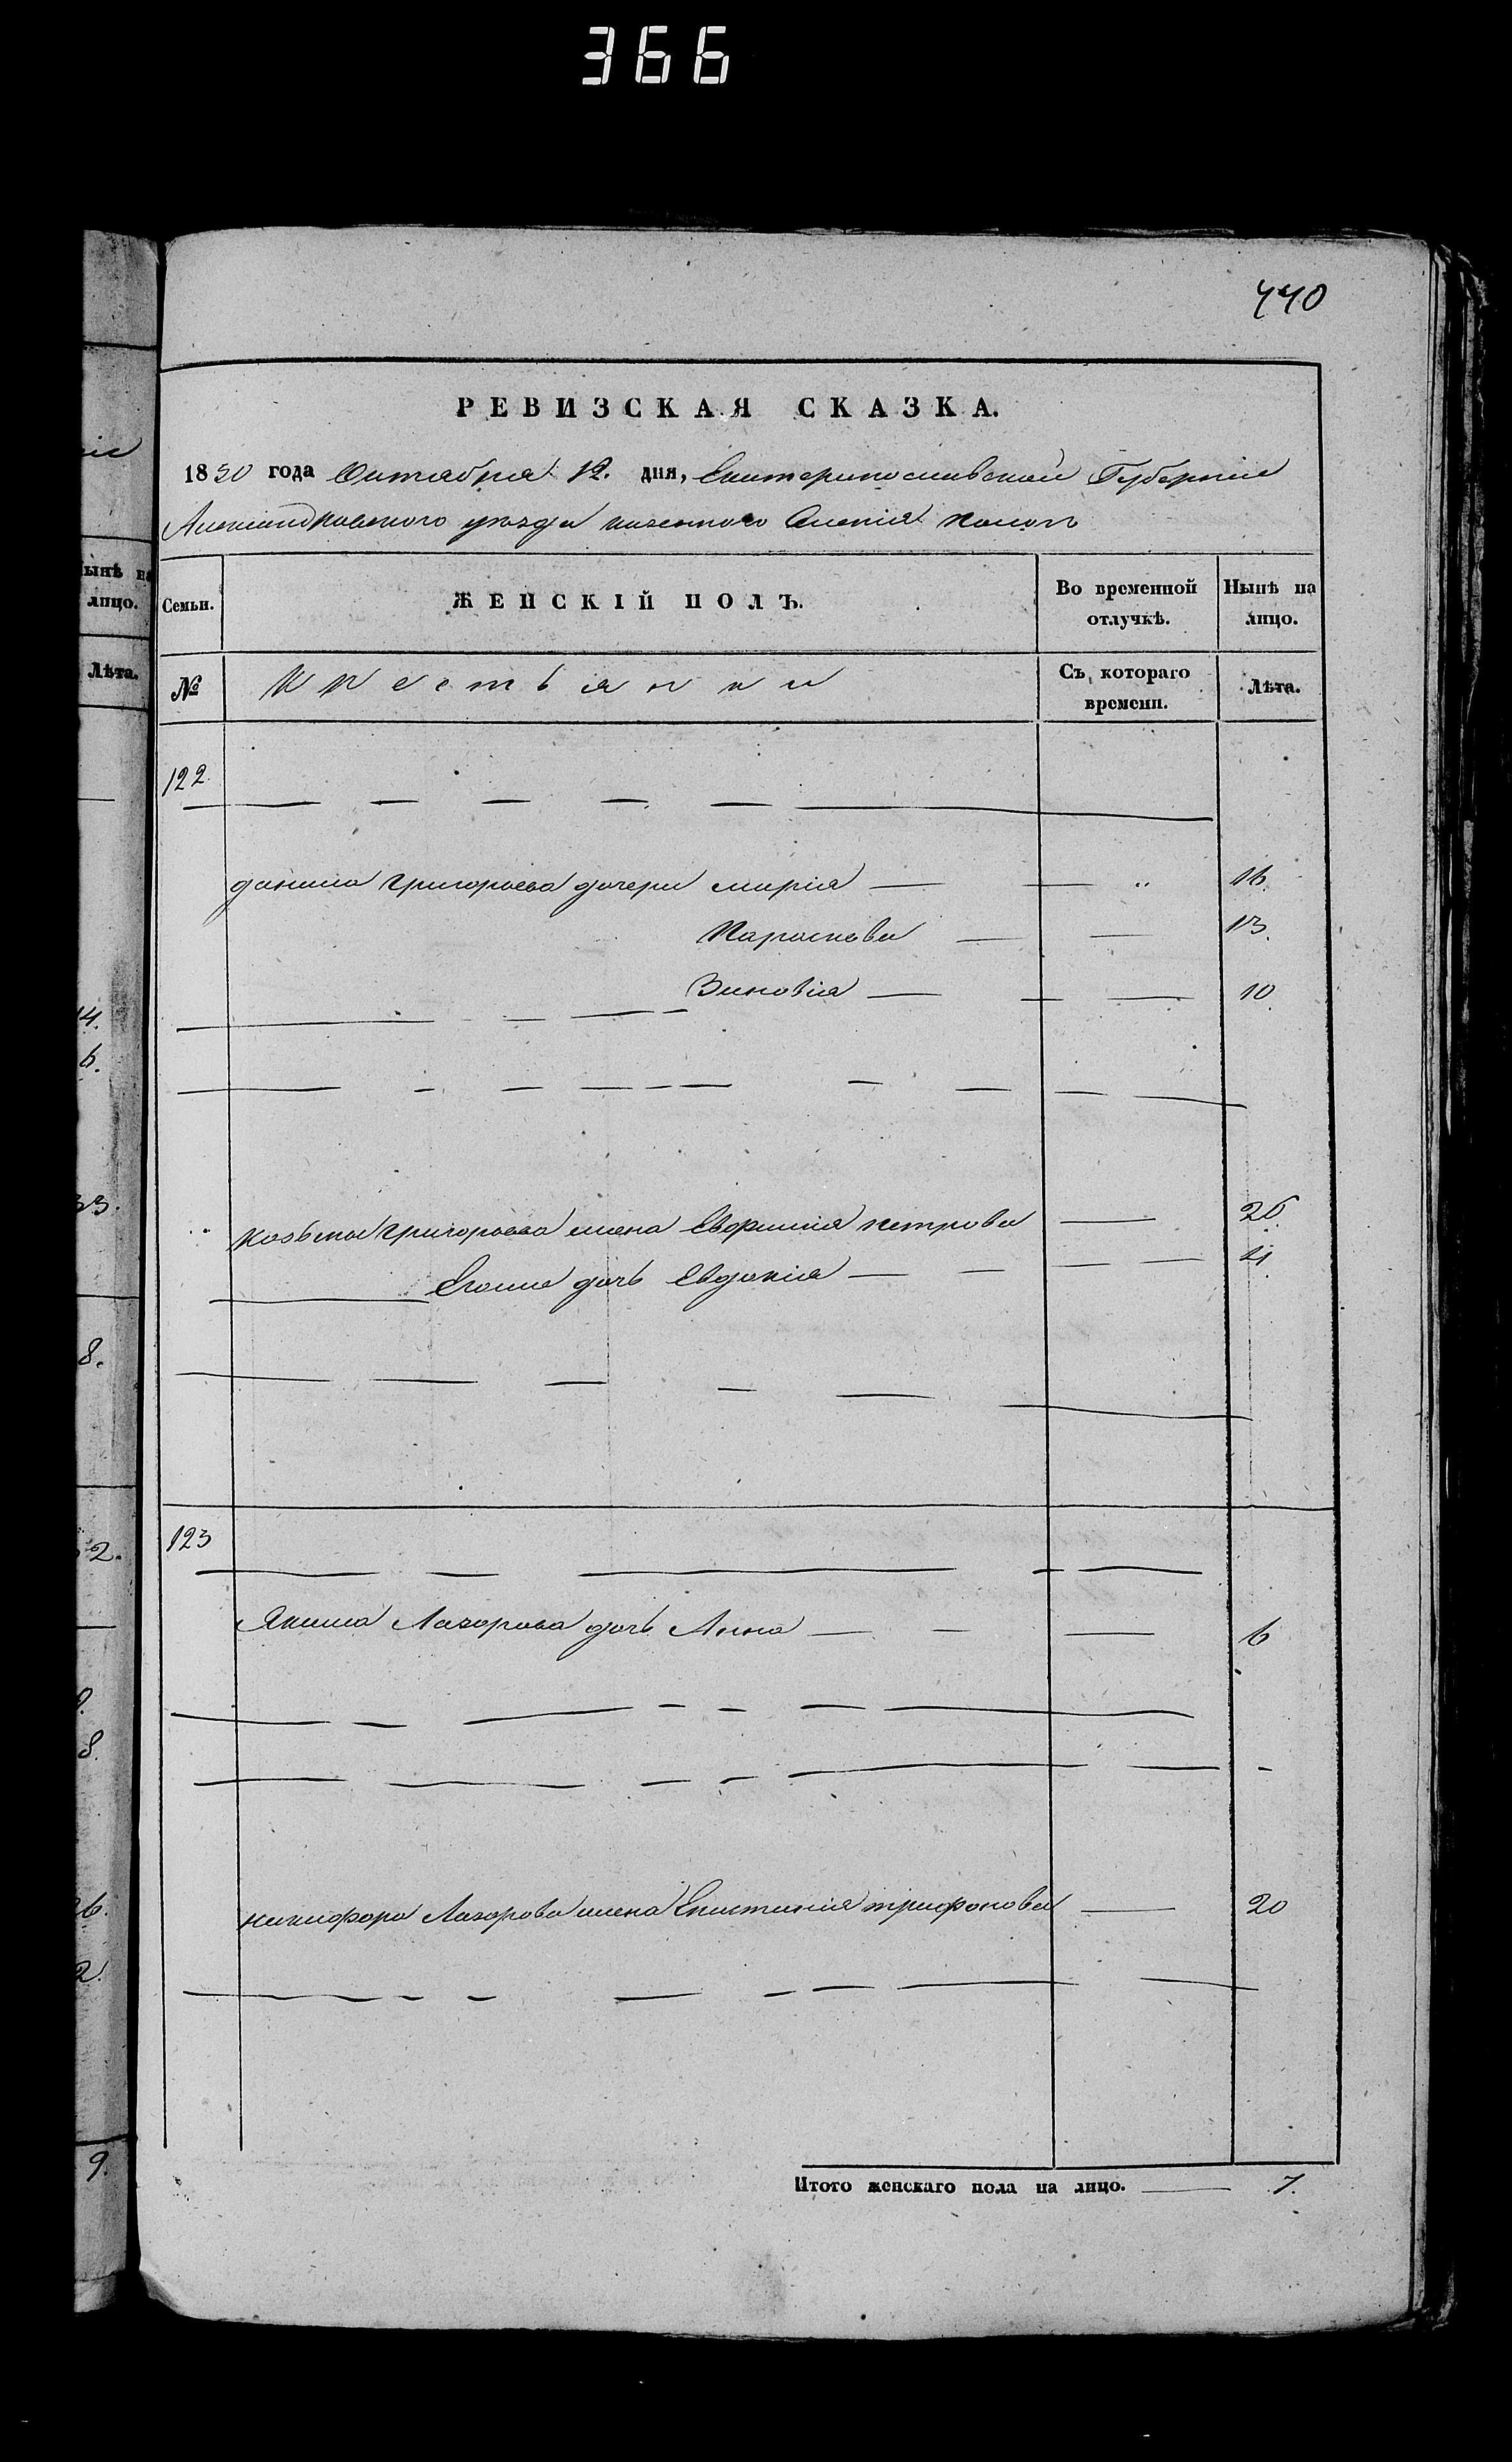 366
440
РЕВИЗСКАЯ СКАЗКА.
1850 года Октября 12. дня, Екатеринославской Губерніи
Александровского уезда казенного Селенія
ынѣ на
лицо.
Лѣта.
Семьи.
ЖЕНСКІЙ ПОЛЪ.
Во временной
отлучкѣ.
Нынѣ на
лицо.
№
Крестьянки
Съ котораго
времени.
Лѣта.
122
данила Григорьева дочери марія 16.
Параскева 13.
Зиновія 10.
Козьмы Григорьева жена Евфимія петрова 26.
Егоже дочь Евдокія 4.
123
Якима Лазорева дочь Анна 6
никифора Лазорева жена Епистинія трифонова 20
Итого женскаго пола на лицо. 7.